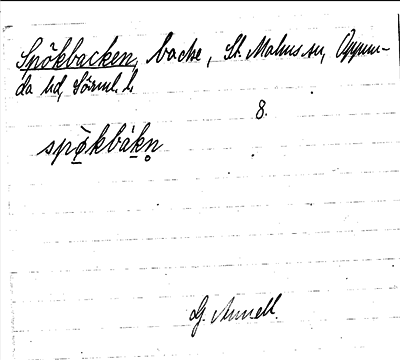 Spökbacken, backe, St. Malms sn, Oppun-
da hd, Sörml. l.
8.
spö̀kbàkn̥
G. Annell.